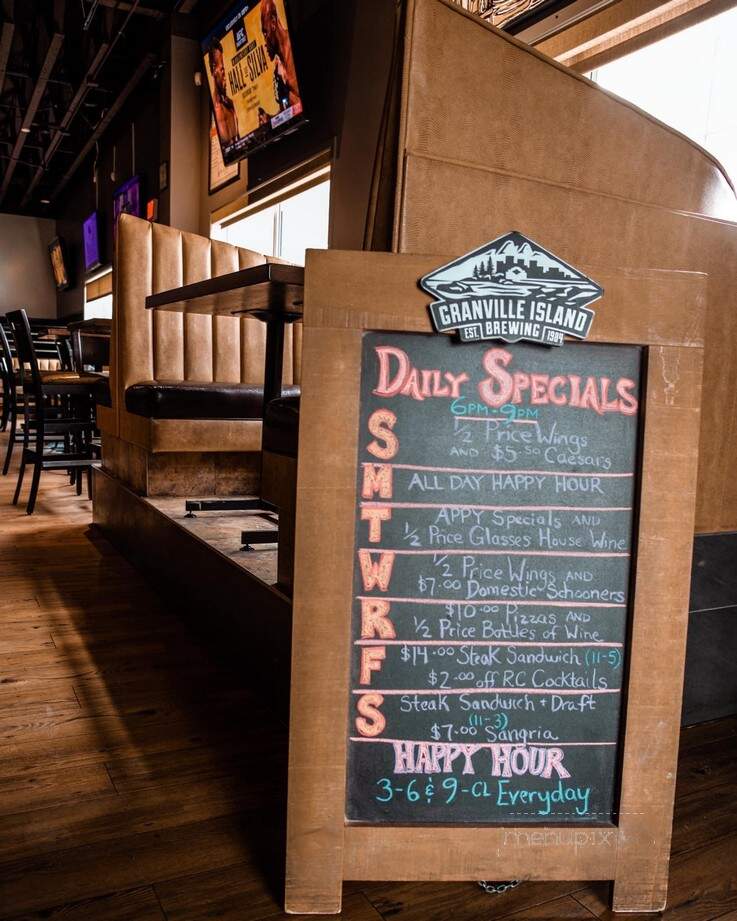 UFC
HALL vs SILVA
GRANVILLE ISLAND
EST. BREWING 1984
DAILY SPECIALS
6PM-9PM
S
1/2 Price Wings
AND $5.50 Caesars
M
ALL DAY HAPPY HOUR
T
APPY Specials AND
1/2 Price Glasses House Wine
W
1/2 Price Wings AND
$7.00 Domestic Schooners
R
$10.00 Pizzas AND
1/2 Price Bottles of Wine
F
$14.00 Steak Sandwich (11-5)
$2.00 off RC Cocktails
S
Steak Sandwich + Draft
(11-3)
$7.00 Sangria
HAPPY HOUR
3-6 & 9-CL Everyday
menupix